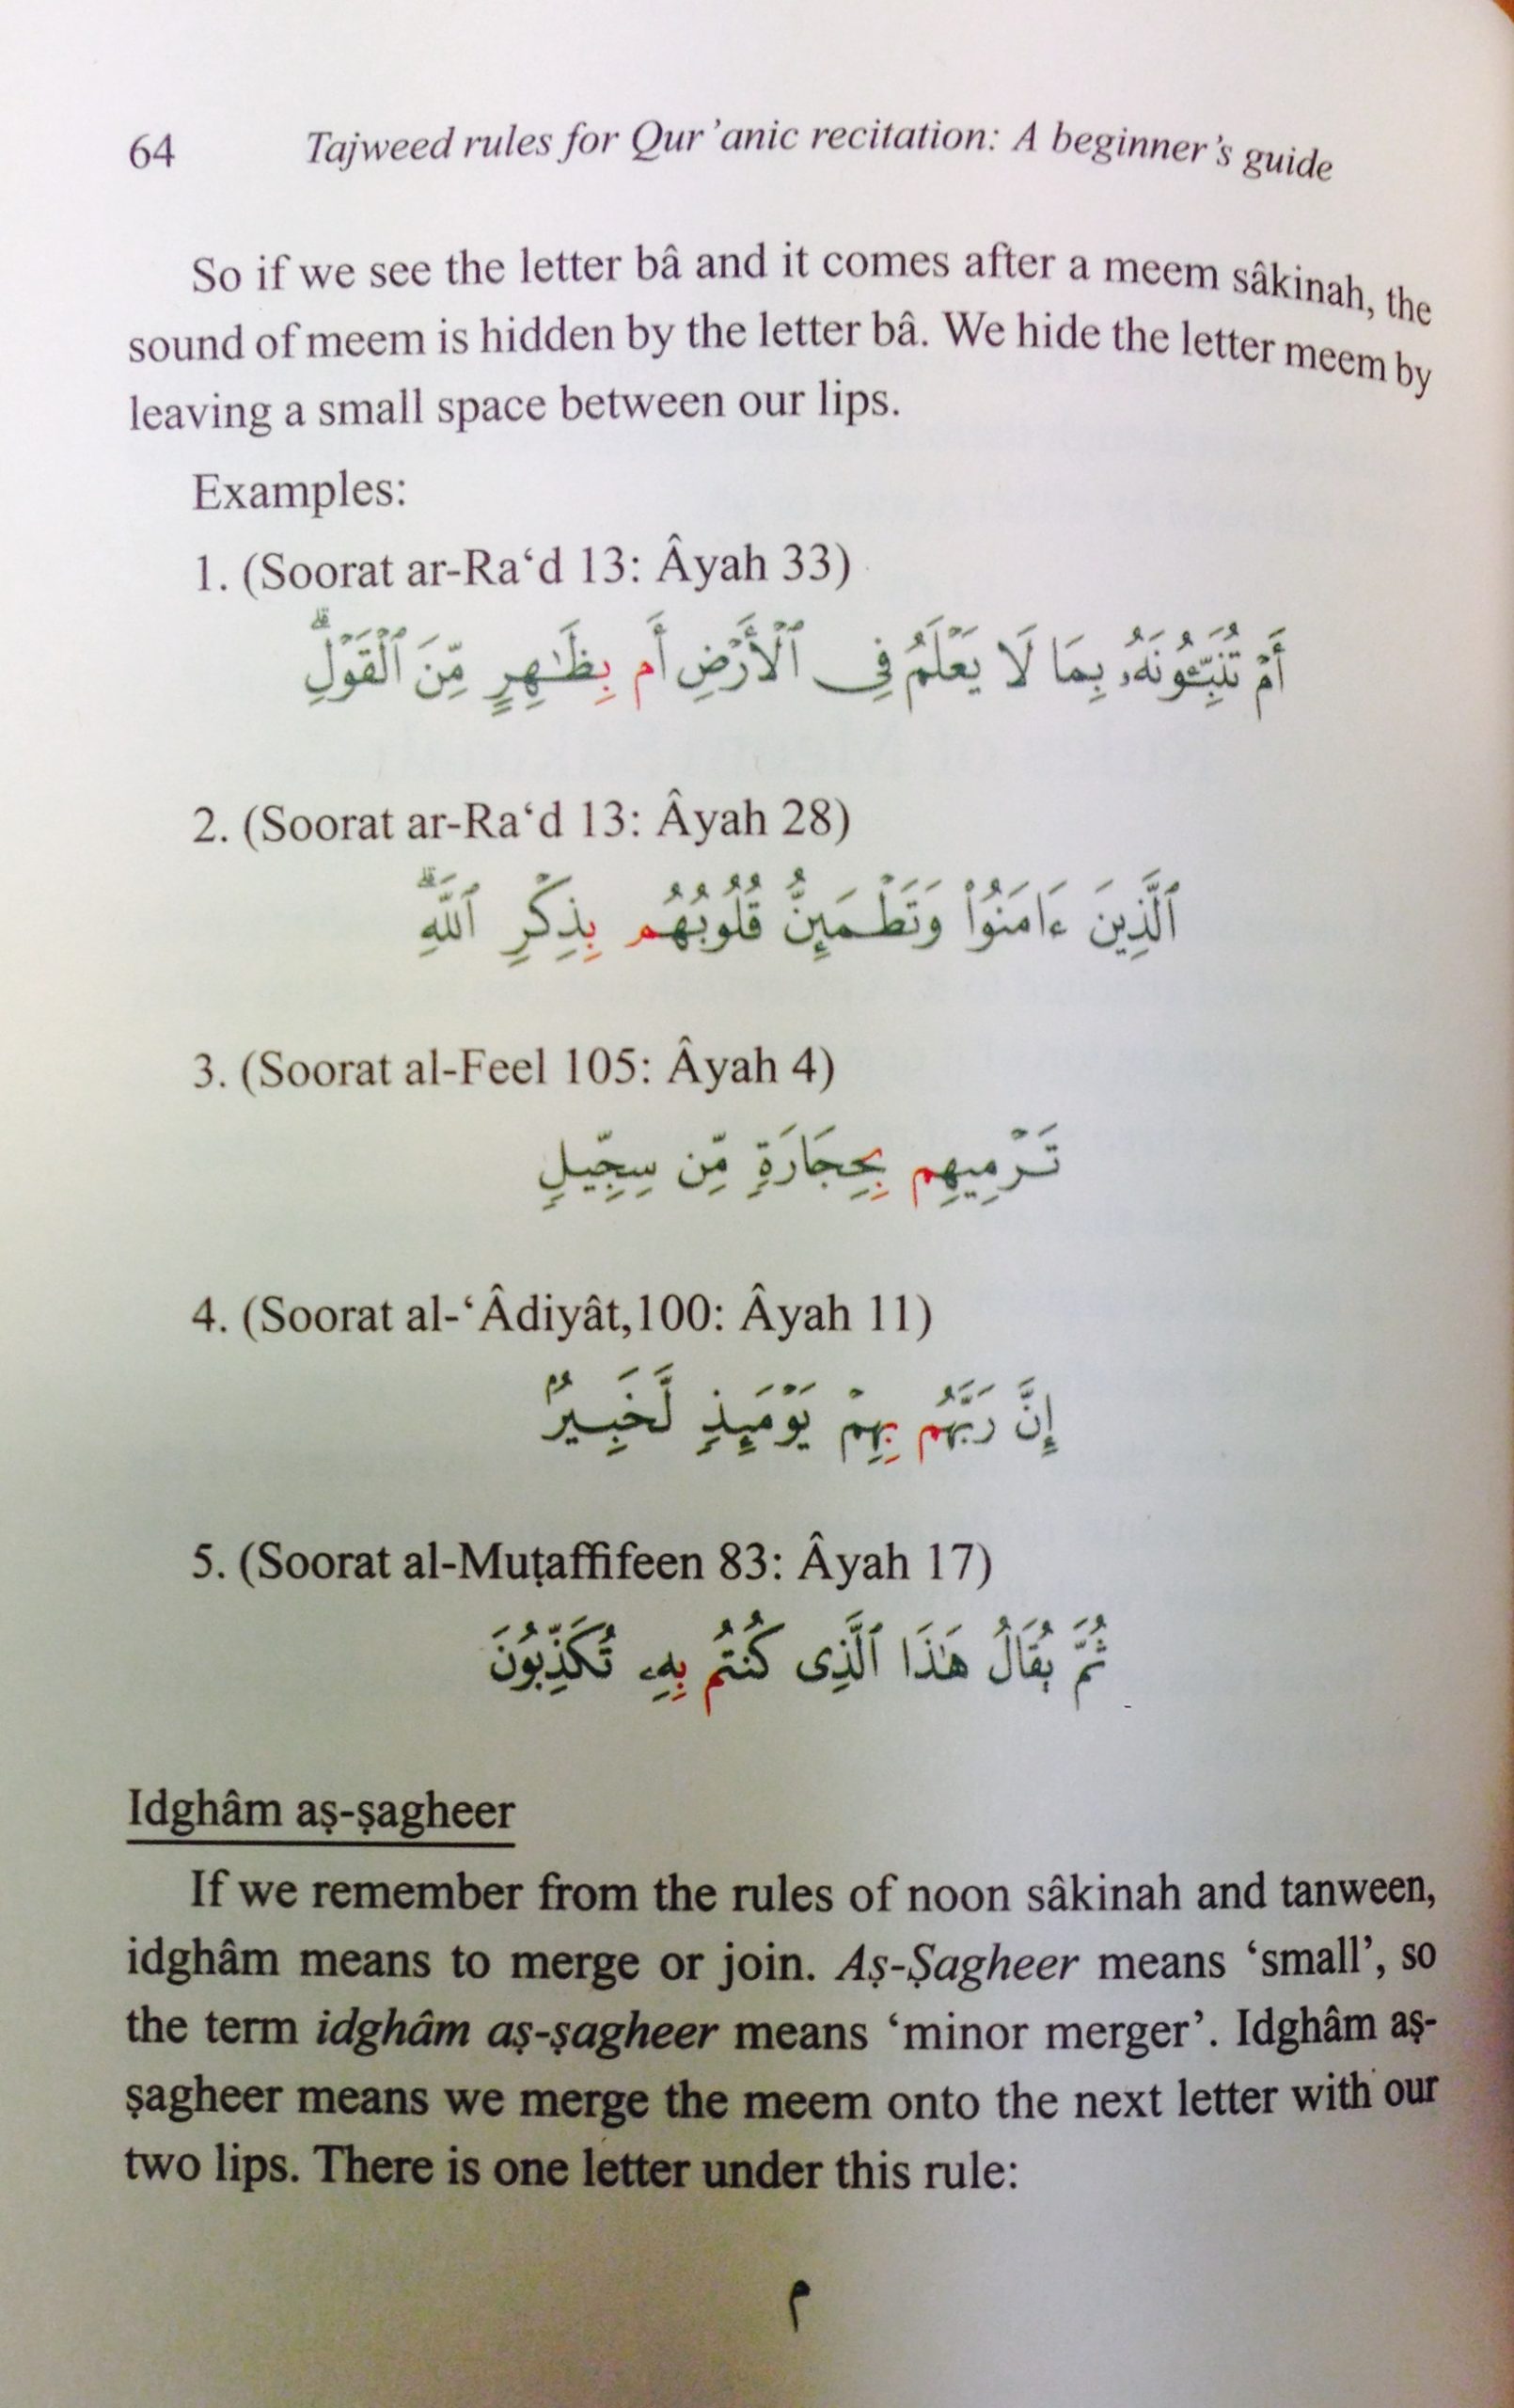 64 Tajweed rules for Qur’anic recitation: A beginner’s guide
So if we see the letter bâ and it comes after a meem sâkinah, the
sound of meem is hidden by the letter bâ. We hide the letter meem by
leaving a small space between our lips.
Examples:
1. (Soorat ar-Ra‘d 13: Âyah 33)
أَمْ تُنَبِّـُٔونَهُۥ بِمَا لَا يَعْلَمُ فِى ٱلْأَرْضِ أَم بِظَـٰهِرٍ مِّنَ ٱلْقَوْلِ ۗ
2. (Soorat ar-Ra‘d 13: Âyah 28)
ٱلَّذِينَ ءَامَنُوا۟ وَتَطْمَئِنُّ قُلُوبُهُم بِذِكْرِ ٱللَّهِ ۗ
3. (Soorat al-Feel 105: Âyah 4)
تَرْمِيهِم بِحِجَارَةٍ مِّن سِجِّيلٍ
4. (Soorat al-‘Âdiyât,100: Âyah 11)
إِنَّ رَبَّهُم بِهِمْ يَوْمَئِذٍ لَّخَبِيرٌۢ
5. (Soorat al-Muṭaffifeen 83: Âyah 17)
ثُمَّ يُقَالُ هَـٰذَا ٱلَّذِى كُنتُم بِهِۦ تُكَذِّبُونَ
Idghâm aṣ-ṣagheer
If we remember from the rules of noon sâkinah and tanween,
idghâm means to merge or join. Aṣ-Ṣagheer means ‘small’, so
the term idghâm aṣ-ṣagheer means ‘minor merger’. Idghâm aṣ-
ṣagheer means we merge the meem onto the next letter with our
two lips. There is one letter under this rule:
م